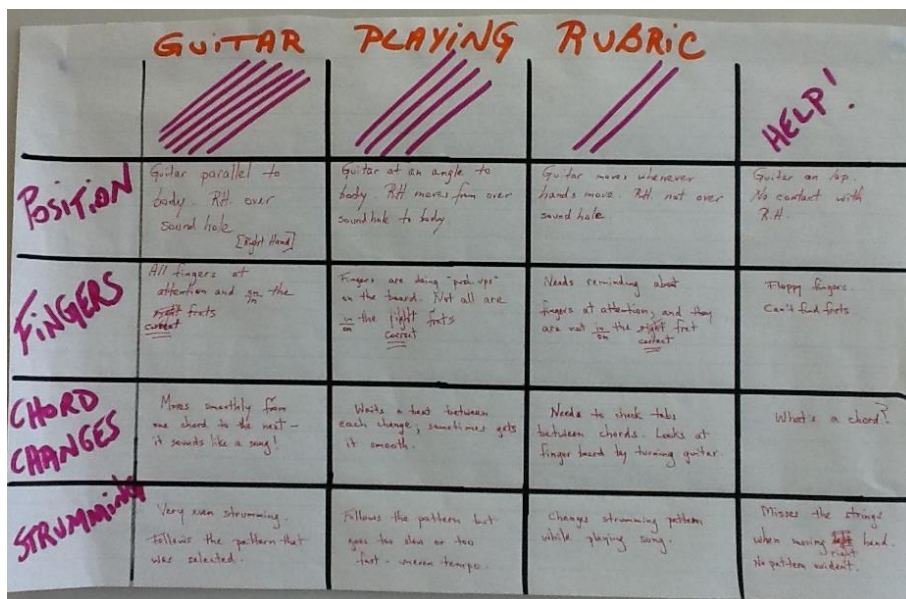 GUITAR PLAYING RUBRIC
HELP!
POSITION
Guitar parallel to
body. R.H. over
sound hole
[Right Hand]
Guitar at an angle to
body. R.H. moves from over
sound hole to body.
Guitar moves whenever
hands move. R.H. not over
sound hole.
Guitar on lap.
No contact with
R.H.
FINGERS
All fingers at
attention and on the
in
right frets
correct
Fingers are doing "push ups"
on the board. Not all are
in the right frets
on correct
Needs reminding about
fingers at attention, and they
are not in the right fret
on correct
Floppy fingers.
Can't find frets.
CHORD
CHANGES
Moves smoothly from
one chord to the next -
it sounds like a song!
Waits a beat between
each change, sometimes gets
it smooth.
Needs to check tabs
between chords. Looks at
finger board by turning guitar.
What's a chord?
STRUMMING
Very even strumming.
Follows the pattern that
was selected.
Follows the pattern but
goes too slow or too
fast - uneven tempo.
Changes strumming pattern
while playing song.
Misses the strings
when moving hand.
right
No pattern evident.